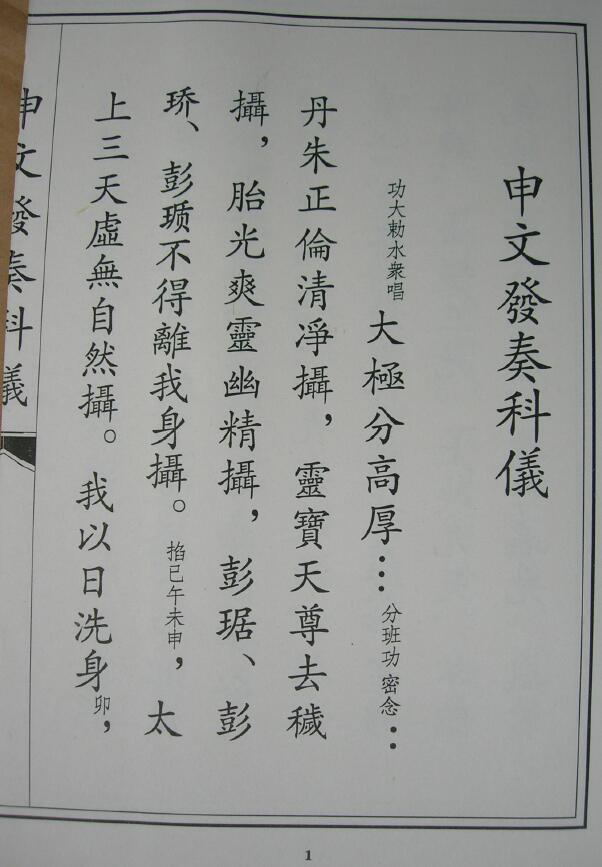 申文發奏科儀
功大勅水衆唱大極分高厚…分班功密念：
丹朱正倫清凈攝，靈寶天尊去穢
攝，胎光爽靈幽精攝，彭琚、彭
琋、彭琐不得離我身攝。掐巳午未申，太
上三天虛無自然攝。我以日洗身卯，
申文發奏科儀
1